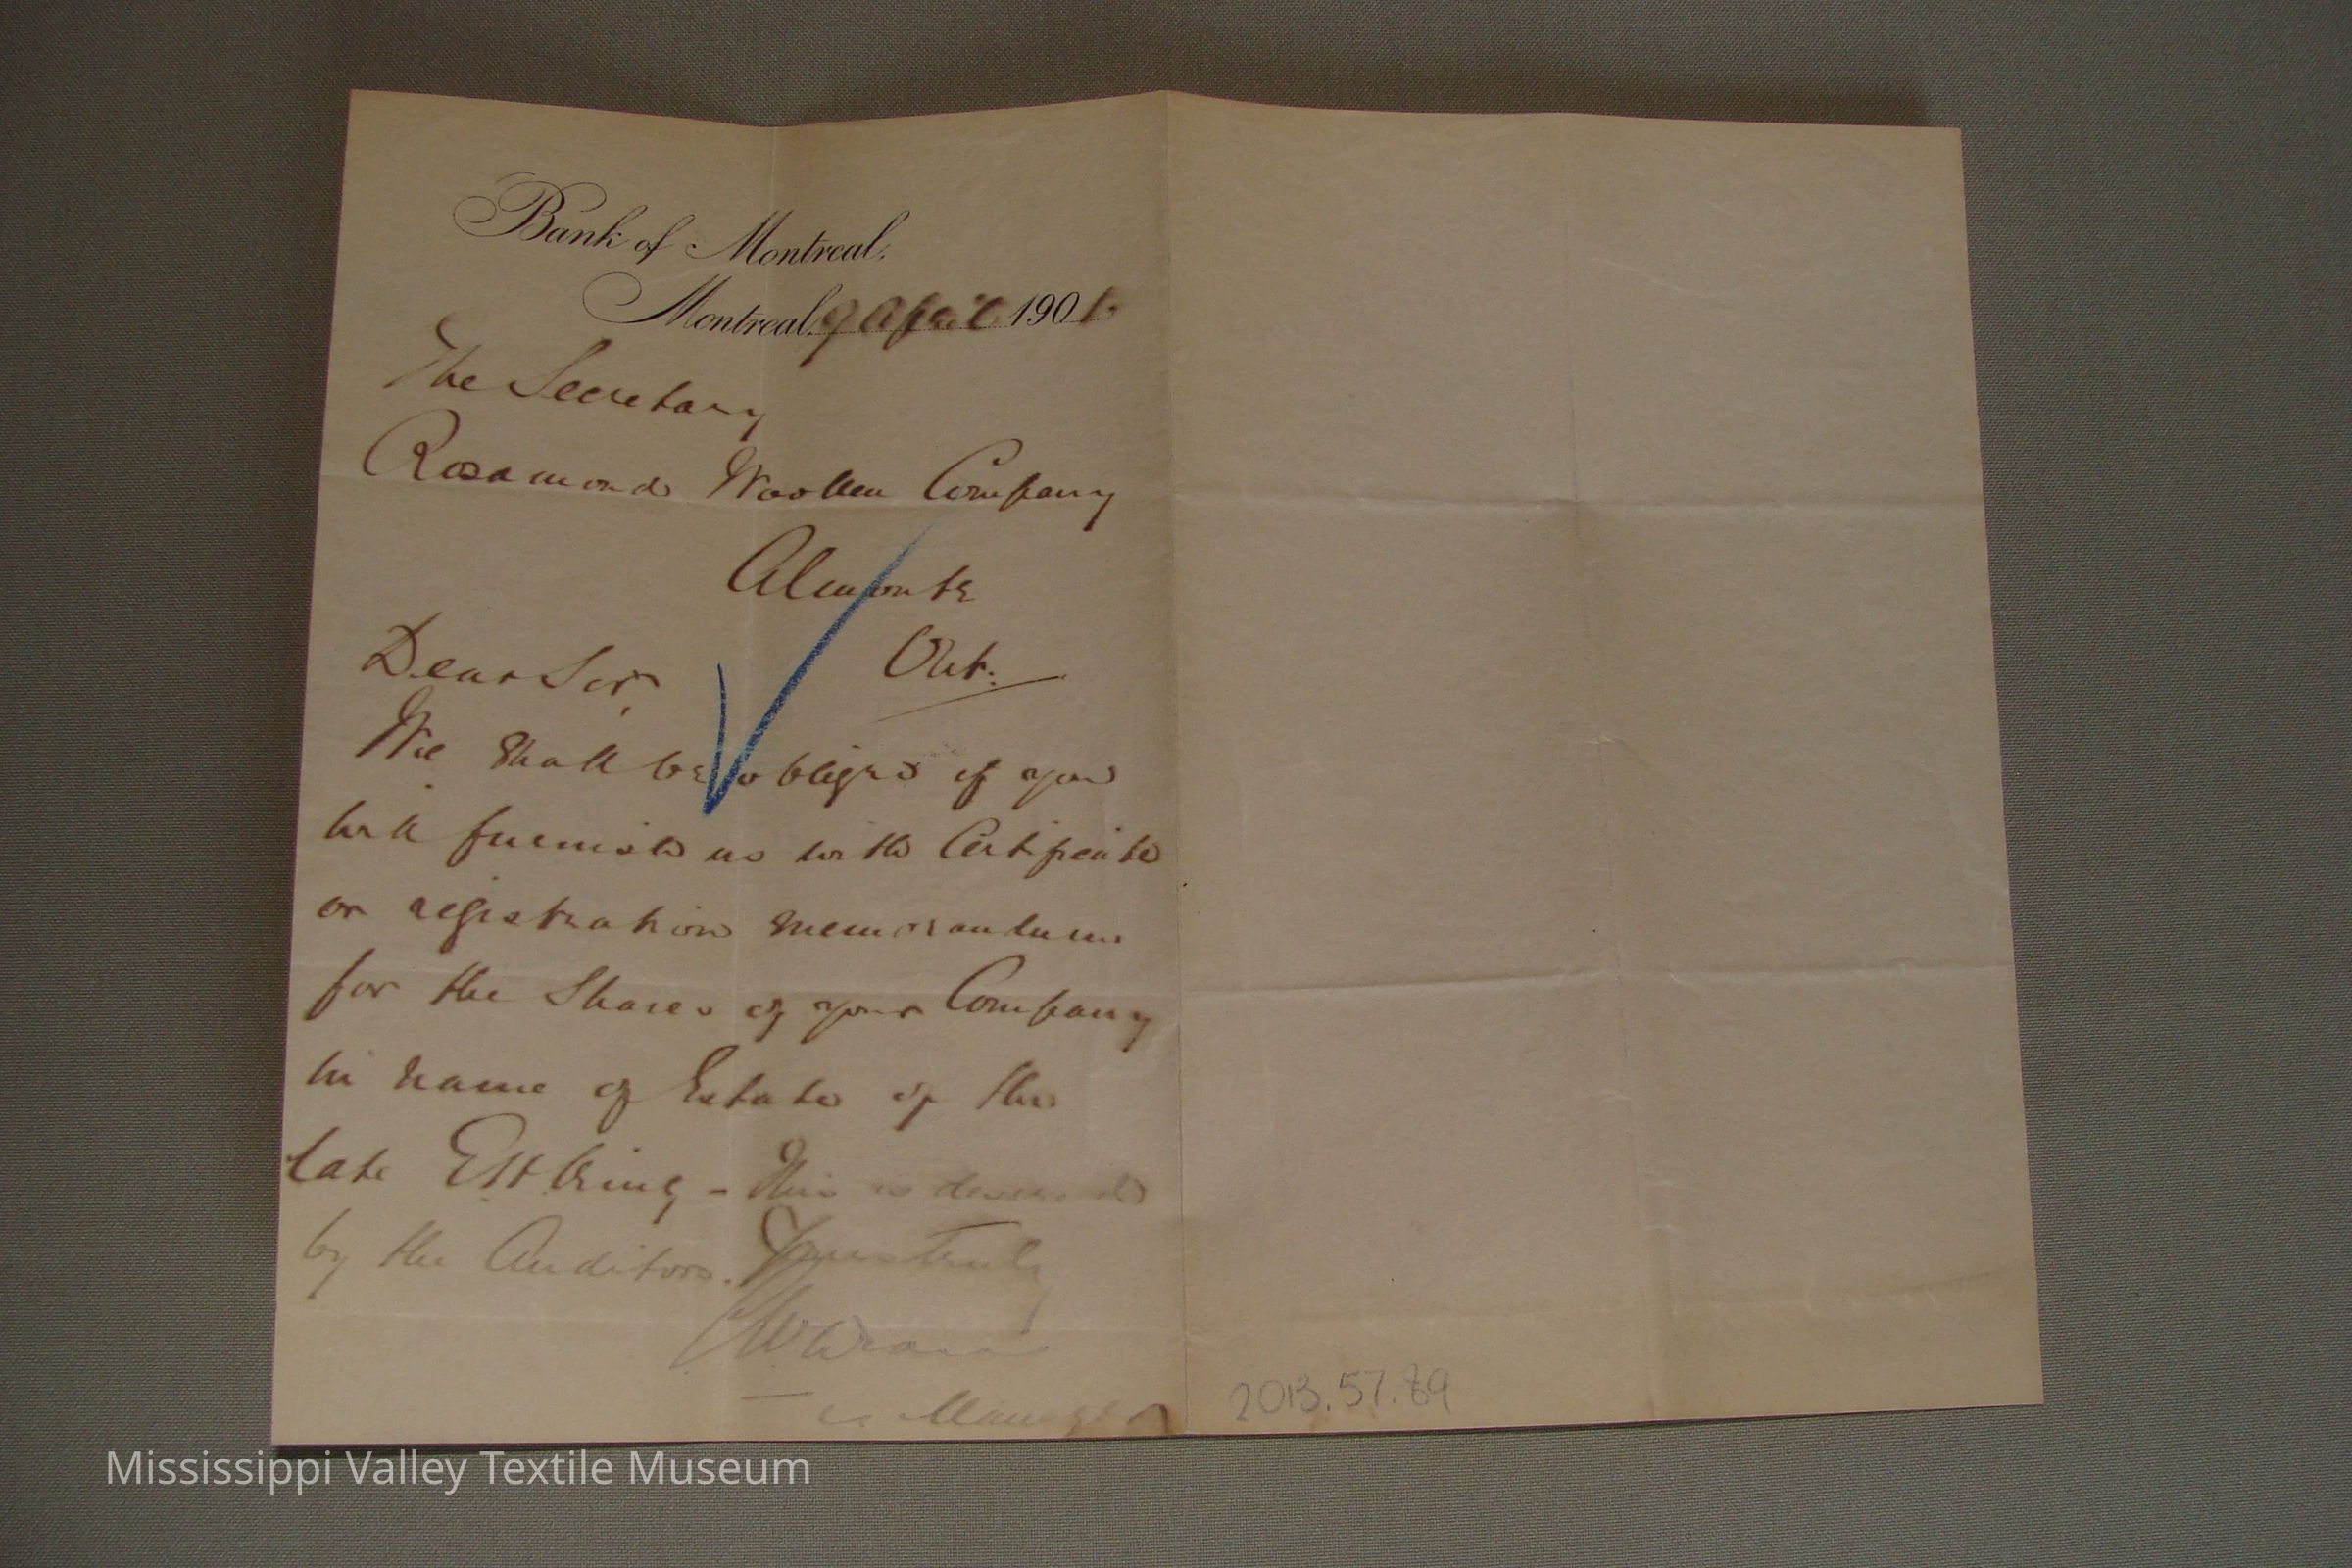 Bank of Montreal,
Montreal, 9 April 1901.
The Secretary
Rosamond Woollen Company
Almonte
Ont.
Dear Sir,
We shall be obliged if you
will furnish us with Certificate
or registration memorandum
for the Shares of your Company
in name of Estate of the
late E H King - This is desired
by the Auditors. Yours truly
Manager
2013.57.89
Mississippi Valley Textile Museum